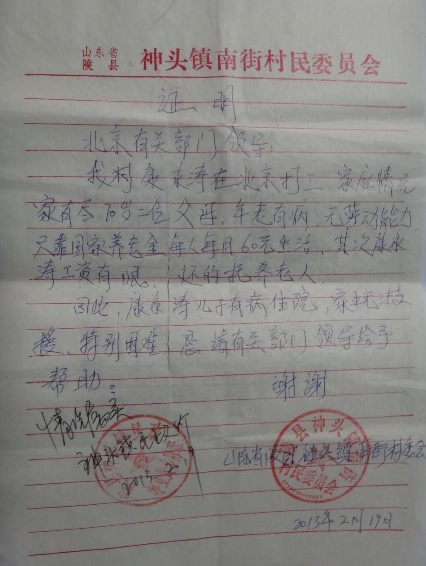 山东省
陵县
神头镇南街村民委员会
证明
北京有关部门领导:
我村康来涛在北京打工,家庭情况
家有尽70岁二位父母,年老有病,无劳动能力,
只靠国家养老金每人每月60元生活,其次康来
涛工资有限,还的抚养老人,
因此,康来涛儿子有病住院,家中无法支
援,特别困难,恳请有关部门领导给予
帮助。
谢谢
情况属实
神头镇
2013.2.19
山东省陵县神头镇南街村委会
2013年2月19日